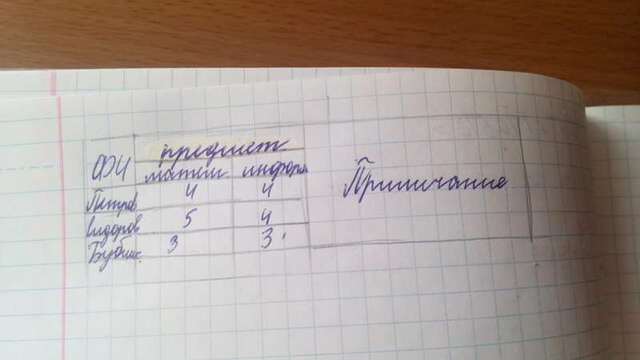 предмет
ФИ матем информ Примечание
Петров 4 4
Сидоров 5 4
3 3